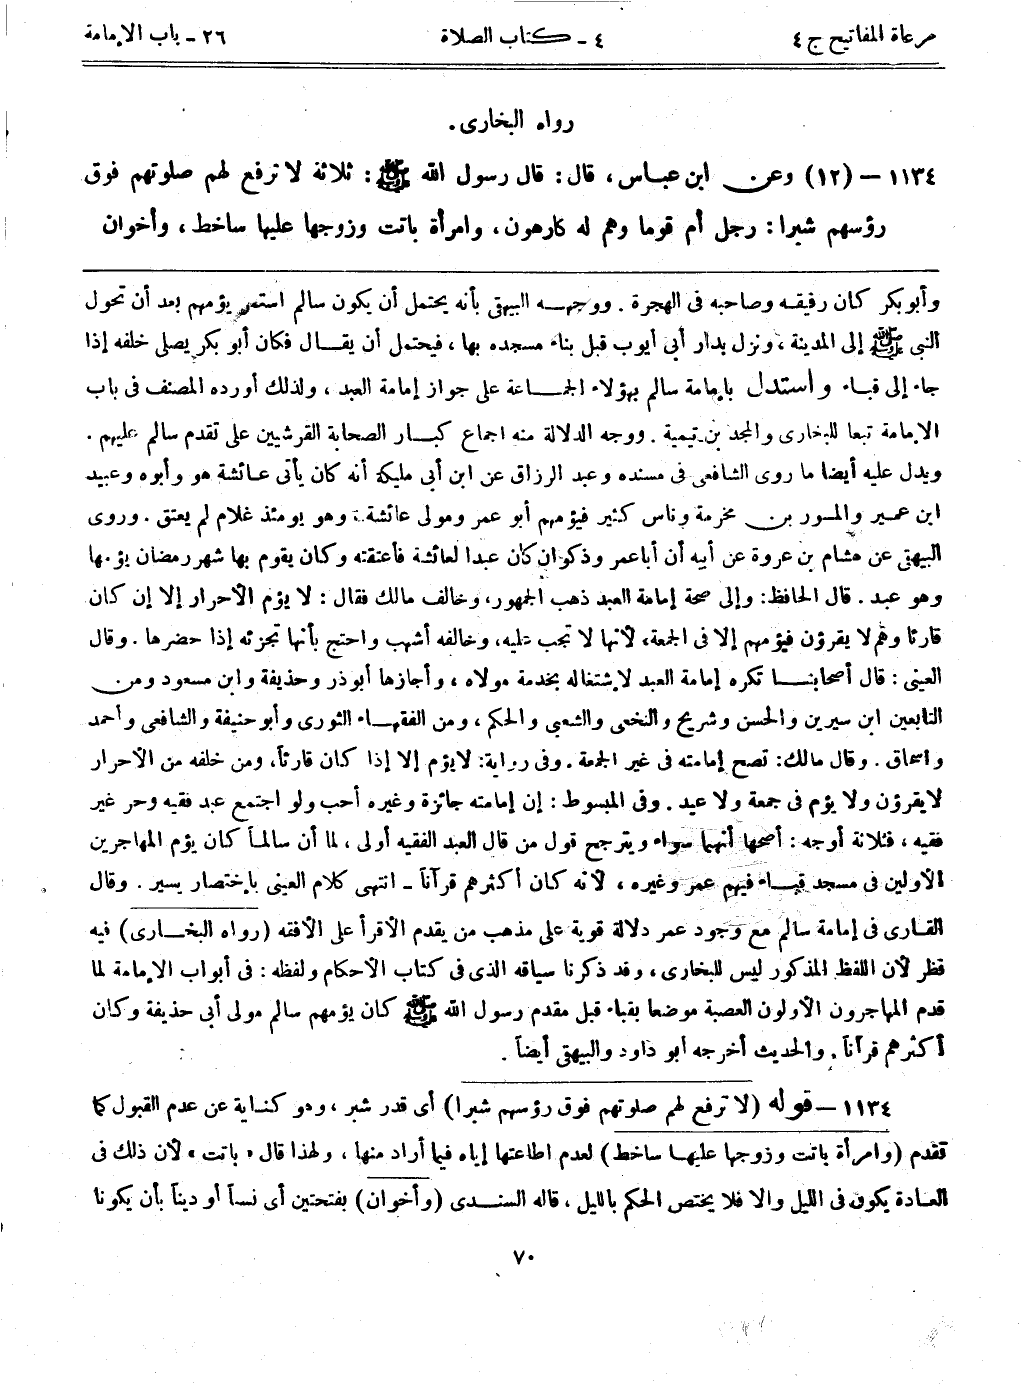 مرعاة المفاتيح ج ٤
٤ - كتاب الصلاة
٢٦ - باب الإمامة
رواه البخارى.
١١٣٤ – (١٢) وعن ابن عباس، قال: قال رسول الله ﷺ: ثلاثة لا ترفع لهم صلوتهم فوق
رؤسهم شبرا: رجل أم قوما وهم له كارهون، وامرأة باتت وزوجها عليها ساخط، وأخوان
وأبو بكر كان رفيقه وصاحبه فى الهجرة. ووجهه البيهقى بأنه يحتمل أن يكون سالم استمر يؤمهم بعد أن تحول
النبى ﷺ إلى المدينة، ونزل بدار أبى أيوب قبل بناء مسجده بها، فيحتمل أن يقال فكان أبو بكر يصلى خلفه إذا
جاء إلى قباء واستدل بإمامة سالم بهؤلاء الجماعة على جواز إمامة العبد، ولذلك أورده المصنف فى باب
الإمامة تبعا للبخارى والمجد بن تيمية. ووجه الدلالة منه اجماع كبار الصحابة القرشيين على تقدم سالم عليهم.
ويدل عليه أيضا ما روى الشافعى فى مسنده وعبد الرزاق عن ابن أبى مليكة أنه كان يأتى عائشة هو وأبوه وعبيد
ابن عمير والمسور بن مخرمة وناس كثير فيؤمهم أبو عمر ومولى عائشة، وهو يومئذ غلام لم يعتق. وروى
البيهقى عن هشام بن عروة عن أبيه أن أبا عمر وذكوان كان عبدا لعائشة فأعتقته وكان يقوم بها شهر رمضان يؤمها
وهو عبد. قال الحافظ: وإلى صحة إمامة العبد ذهب الجمهور، وخالف مالك فقال: لا يؤم الأحرار إلا إن كان
قارئا وهم لا يقرؤن فيؤمهم إلا فى الجمعة، لأنها لا تجب عليه، وخالفه أشهب واحتج بأنها تجزئه إذا حضرها. وقال
العينى: قال أصحابنا تكره إمامة العبد لاشتغاله بخدمة مولاه، وأجازها أبو ذر وحذيفة وابن مسعود ومن
التابعين ابن سيرين والحسن وشريح والنخعى والشعبى والحكم، ومن الفقهاء الثورى وأبو حنيفة والشافعى وأحمد
واسحاق. وقال مالك: تصح إمامته فى غير الجمعة. وفى رواية: لا يؤم إلا إذا كان قارئاً، ومن خلفه من الأحرار
لا يقرؤن ولا يؤم فى جمعة ولا عيد. وفى المبسوط: إن إمامته جائزة وغيره أحب ولو اجتمع عبد فقيه وحر غير
فقيه، فثلاثة أوجه: أصحها أنهما سواء ويترجح قول من قال العبد الفقيه أولى، لما أن سالماً كان يؤم المهاجرين
الأولين فى مسجد قباء فيهم عمر وغيره، لأنه كان أكثرهم قرآناً - انتهى كلام العينى بإختصار يسير. وقال
القارى فى إمامة سالم مع وجود عمر دلالة قوية على مذهب من يقدم الأقرأ على الأفقه (رواه البخارى) فيه
نظر لأن اللفظ المذكور ليس للبخارى، وقد ذكرنا سياقه الذى فى كتاب الأحكام ولفظه: فى أبواب الإمامة لما
قدم المهاجرون الأولون العصبة موضعا بقباء قبل مقدم رسول الله ﷺ كان يؤمهم سالم مولى أبى حذيفة وكان
أكثرهم قرآناً. والحديث أخرجه أبو داود والبيهقى أيضاً.
١١٣٤ – قوله (لا ترفع لهم صلوتهم فوق رؤسهم شبرا) أى قدر شبر، وهو كناية عن عدم القبول كما
تقدم (وامرأة باتت وزوجها عليها ساخط) لعدم اطاعتها إياه فيما أراد منها، ولهذا قال «باتت» لأن ذلك فى
العادة يكون فى الليل والا فلا يختص الحكم بالليل، قاله السندى (وأخوان) بفتحتين أى نسباً أو ديناً بأن يكونا
٧٠